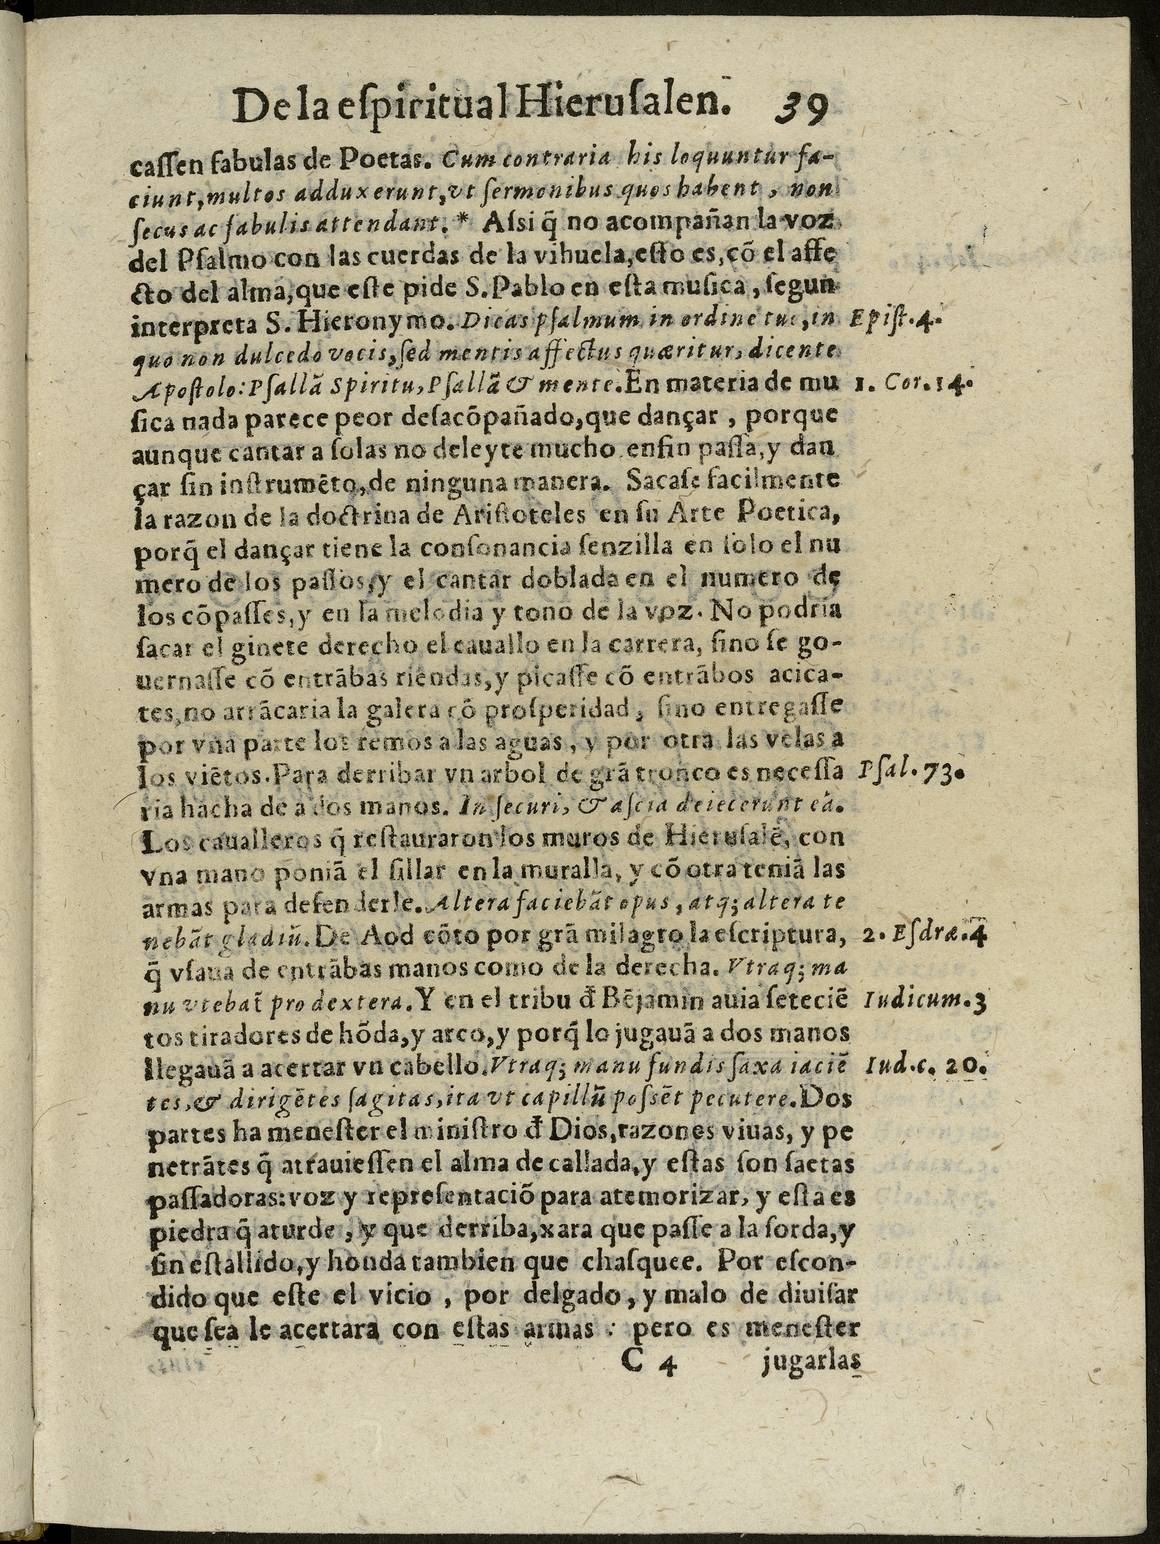 De la eſpiritual Hieruſalen. 39
caſſen fabulas de Poetas. Cum contraria his loquuntur fa-
ciunt, multos adduxerunt, vt ſermonibus quos habent, non
ſecus ac fabulis attendant. * Aſsi q̃ no acompañan la voz
del Pſalmo con las cuerdas de la vihuela, eſto es, cõ el affe
cto del alma, que eſte pide S. Pablo en eſta muſica, ſegun
interpreta S. Hieronymo. Dicas pſalmum in ordine tuo, in Epiſt. 4.
quo non dulcedo vocis, ſed mentis affectus quæritur, dicente
Apoſtolo: Pſallã Spiritu, Pſallã & mente. En materia de mu 1. Cor. 14.
ſica nada parece peor deſacõpañado, que dançar, porque
aunque cantar a ſolas no deleyte mucho enfin paſſa, y dan
çar ſin inſtrumẽto, de ninguna manera. Sacaſe facilmente
la razon de la doctrina de Ariſtoteles en ſu Arte Poetica,
porq̃ el dançar tiene la conſonancia ſenzilla en ſolo el nu
mero de los paſſos, y el cantar doblada en el numero de
los cõpaſſes, y en la melodia y tono de la voz. No podria
ſacar el ginete derecho el cauallo en la carrera, ſino ſe go-
uernaſſe cõ entrãbas riendas, y picaſſe cõ entrãbos acica-
tes, no arrãcaria la galera cõ proſperidad, ſino entregaſſe
por vna parte los remos a las aguas, y por otra las velas a
los viẽtos. Para derribar vn arbol de grã tronco es neceſſa Pſal. 73.
ria hacha de a dos manos. In ſecuri, & aſcia deiecerunt eã.
Los caualleros q̃ reſtauraron los muros de Hieruſalẽ, con
vna mano poniã el ſillar en la muralla, y cõ otra teniã las
armas para defenderle. Altera faciebãt opus, atq; altera te
nebãt gladiũ. De Aod cõto por grã milagro la eſcriptura, 2. Eſdræ. 4
q̃ vſaua de entrãbas manos como de la derecha. Vtraq; ma
nu vtebat̃ pro dextera. Y en el tribu đ Bẽjamin auia ſeteciẽ Iudicum. 3
tos tiradores de hõda, y arco, y porq̃ lo jugauã a dos manos
llegauã a acertar vn cabello. Vtraq; manu fundis ſaxa iaciẽ Iud. c. 20.
tes, & dirigẽtes ſagitas, ita vt capillũ poſsẽt pecutere. Dos
partes ha meneſter el miniſtro đ Dios, razones viuas, y pe
netrãtes q̃ atrauieſſen el alma de callada, y eſtas ſon ſaetas
paſſadoras: voz y repreſentaciõ para atemorizar, y eſta es
piedra q̃ aturde, y que derriba, xara que paſſe a la ſorda, y
ſin eſtallido, y honda tambien que chaſquee. Por eſcon-
dido que eſte el vicio, por delgado, y malo de diuiſar
que ſea le acertara con eſtas armas: pero es meneſter
C 4 jugarlas